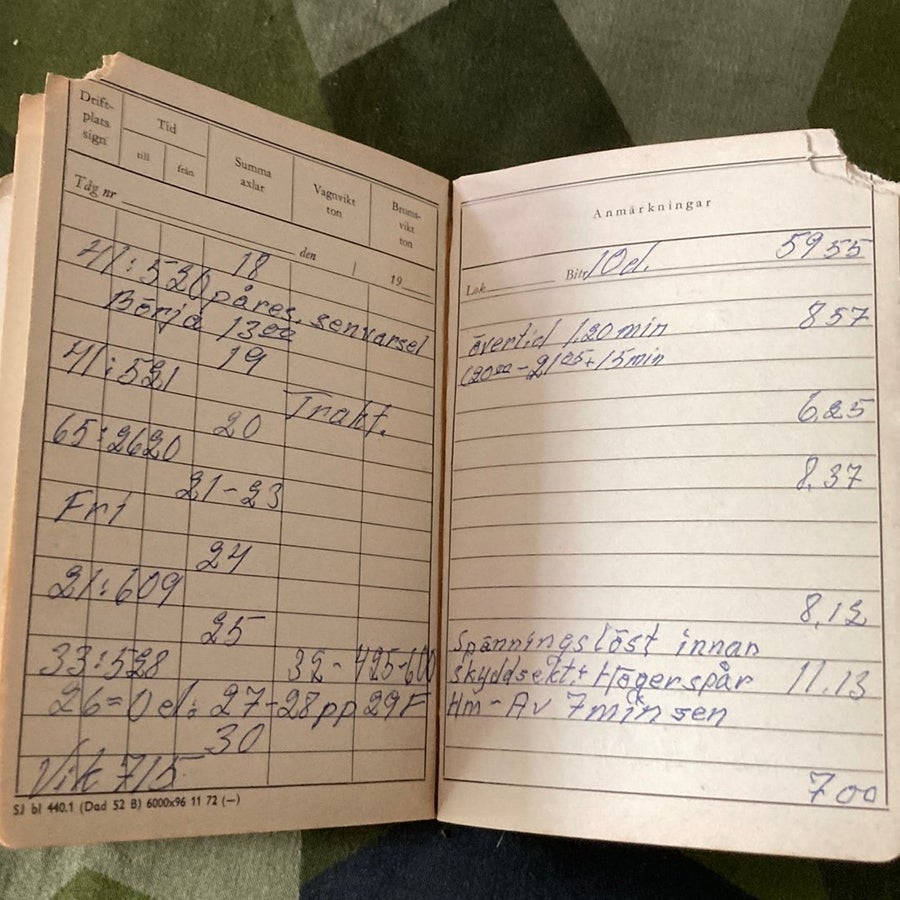 Drift-
plats
sign
Tid
till
från
Summa
axlar
Vagnvikt
ton
Broms-
vikt
ton
Tåg nr den 19
18
41:526 på res. senvarsel
Börja 13 00
19
41:521
Trakt.
20
65:2620
21-23
Fri
24
21:609
25
33:528 32-425-600
26=0el: 27-28pp 29F
30
Vik 715
SJ bl 440.1 (Dad 52 B) 6000x96 11 72 (—)
Anmärkningar
Lok Bitr 10d. 5955
857
övertid 1.20 min
(20 00-21 05+15min
6,25
8,37
8,12
Spänningslöst innan
skyddsekt. Högerspår 11.13
Hm-Av 7min sen
7 00